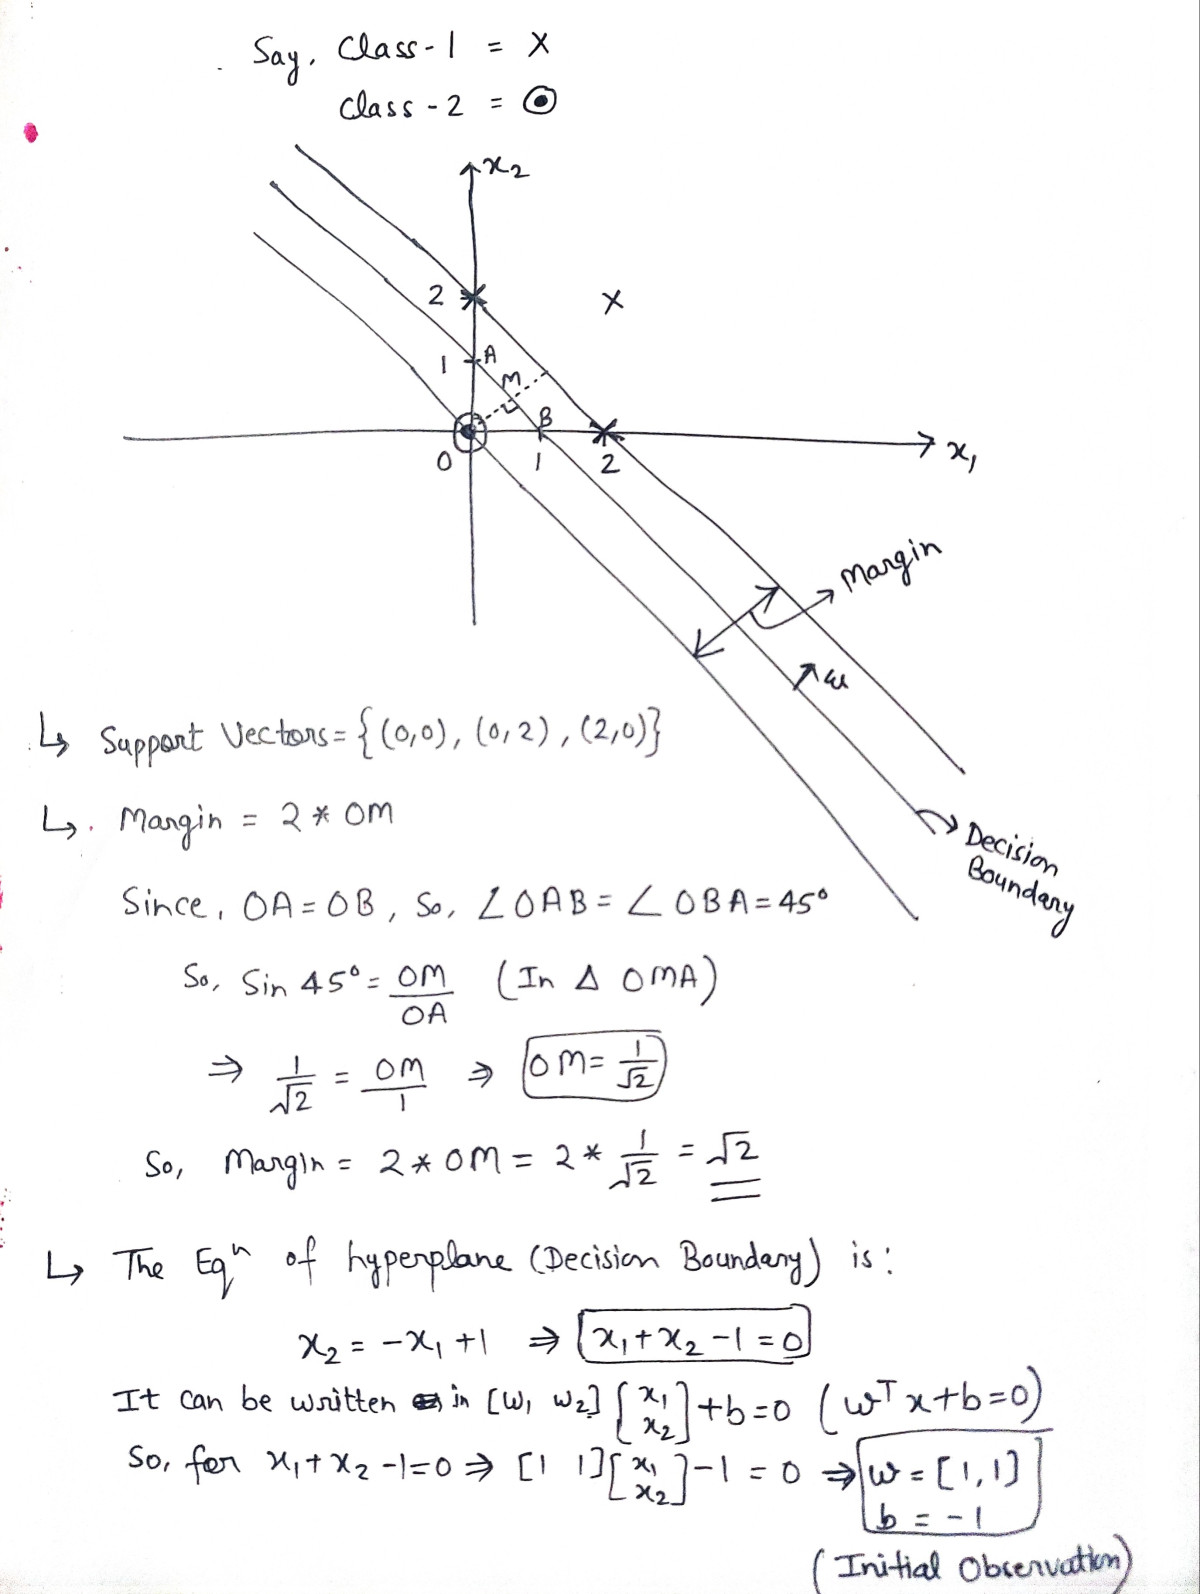 Say, Class-1 = X
Class-2 = ⊙
x₂
2
X
1
A
M
B
0
1
2
x₁
Margin
w
↳ Support Vectors = {(0,0), (0,2), (2,0)}
↳ Margin = 2 * OM
Decision
Boundary
Since, OA = OB, So, ∠OAB = ∠OBA = 45°
So, Sin 45° = OM/OA (In Δ OMA)
⇒ 1/√2 = OM/1 ⇒ OM = 1/√2
So, Margin = 2 * OM = 2 * 1/√2 = √2
↳ The Eqⁿ of hyperplane (Decision Boundary) is:
x₂ = -x₁ + 1 ⇒ x₁ + x₂ - 1 = 0
It can be written in [w₁ w₂] [x₁ x₂] + b = 0 (wᵀx + b = 0)
So, for x₁ + x₂ - 1 = 0 ⇒ [1 1] [x₁ x₂] - 1 = 0 ⇒ w = [1, 1]
b = -1
(Initial Observation)